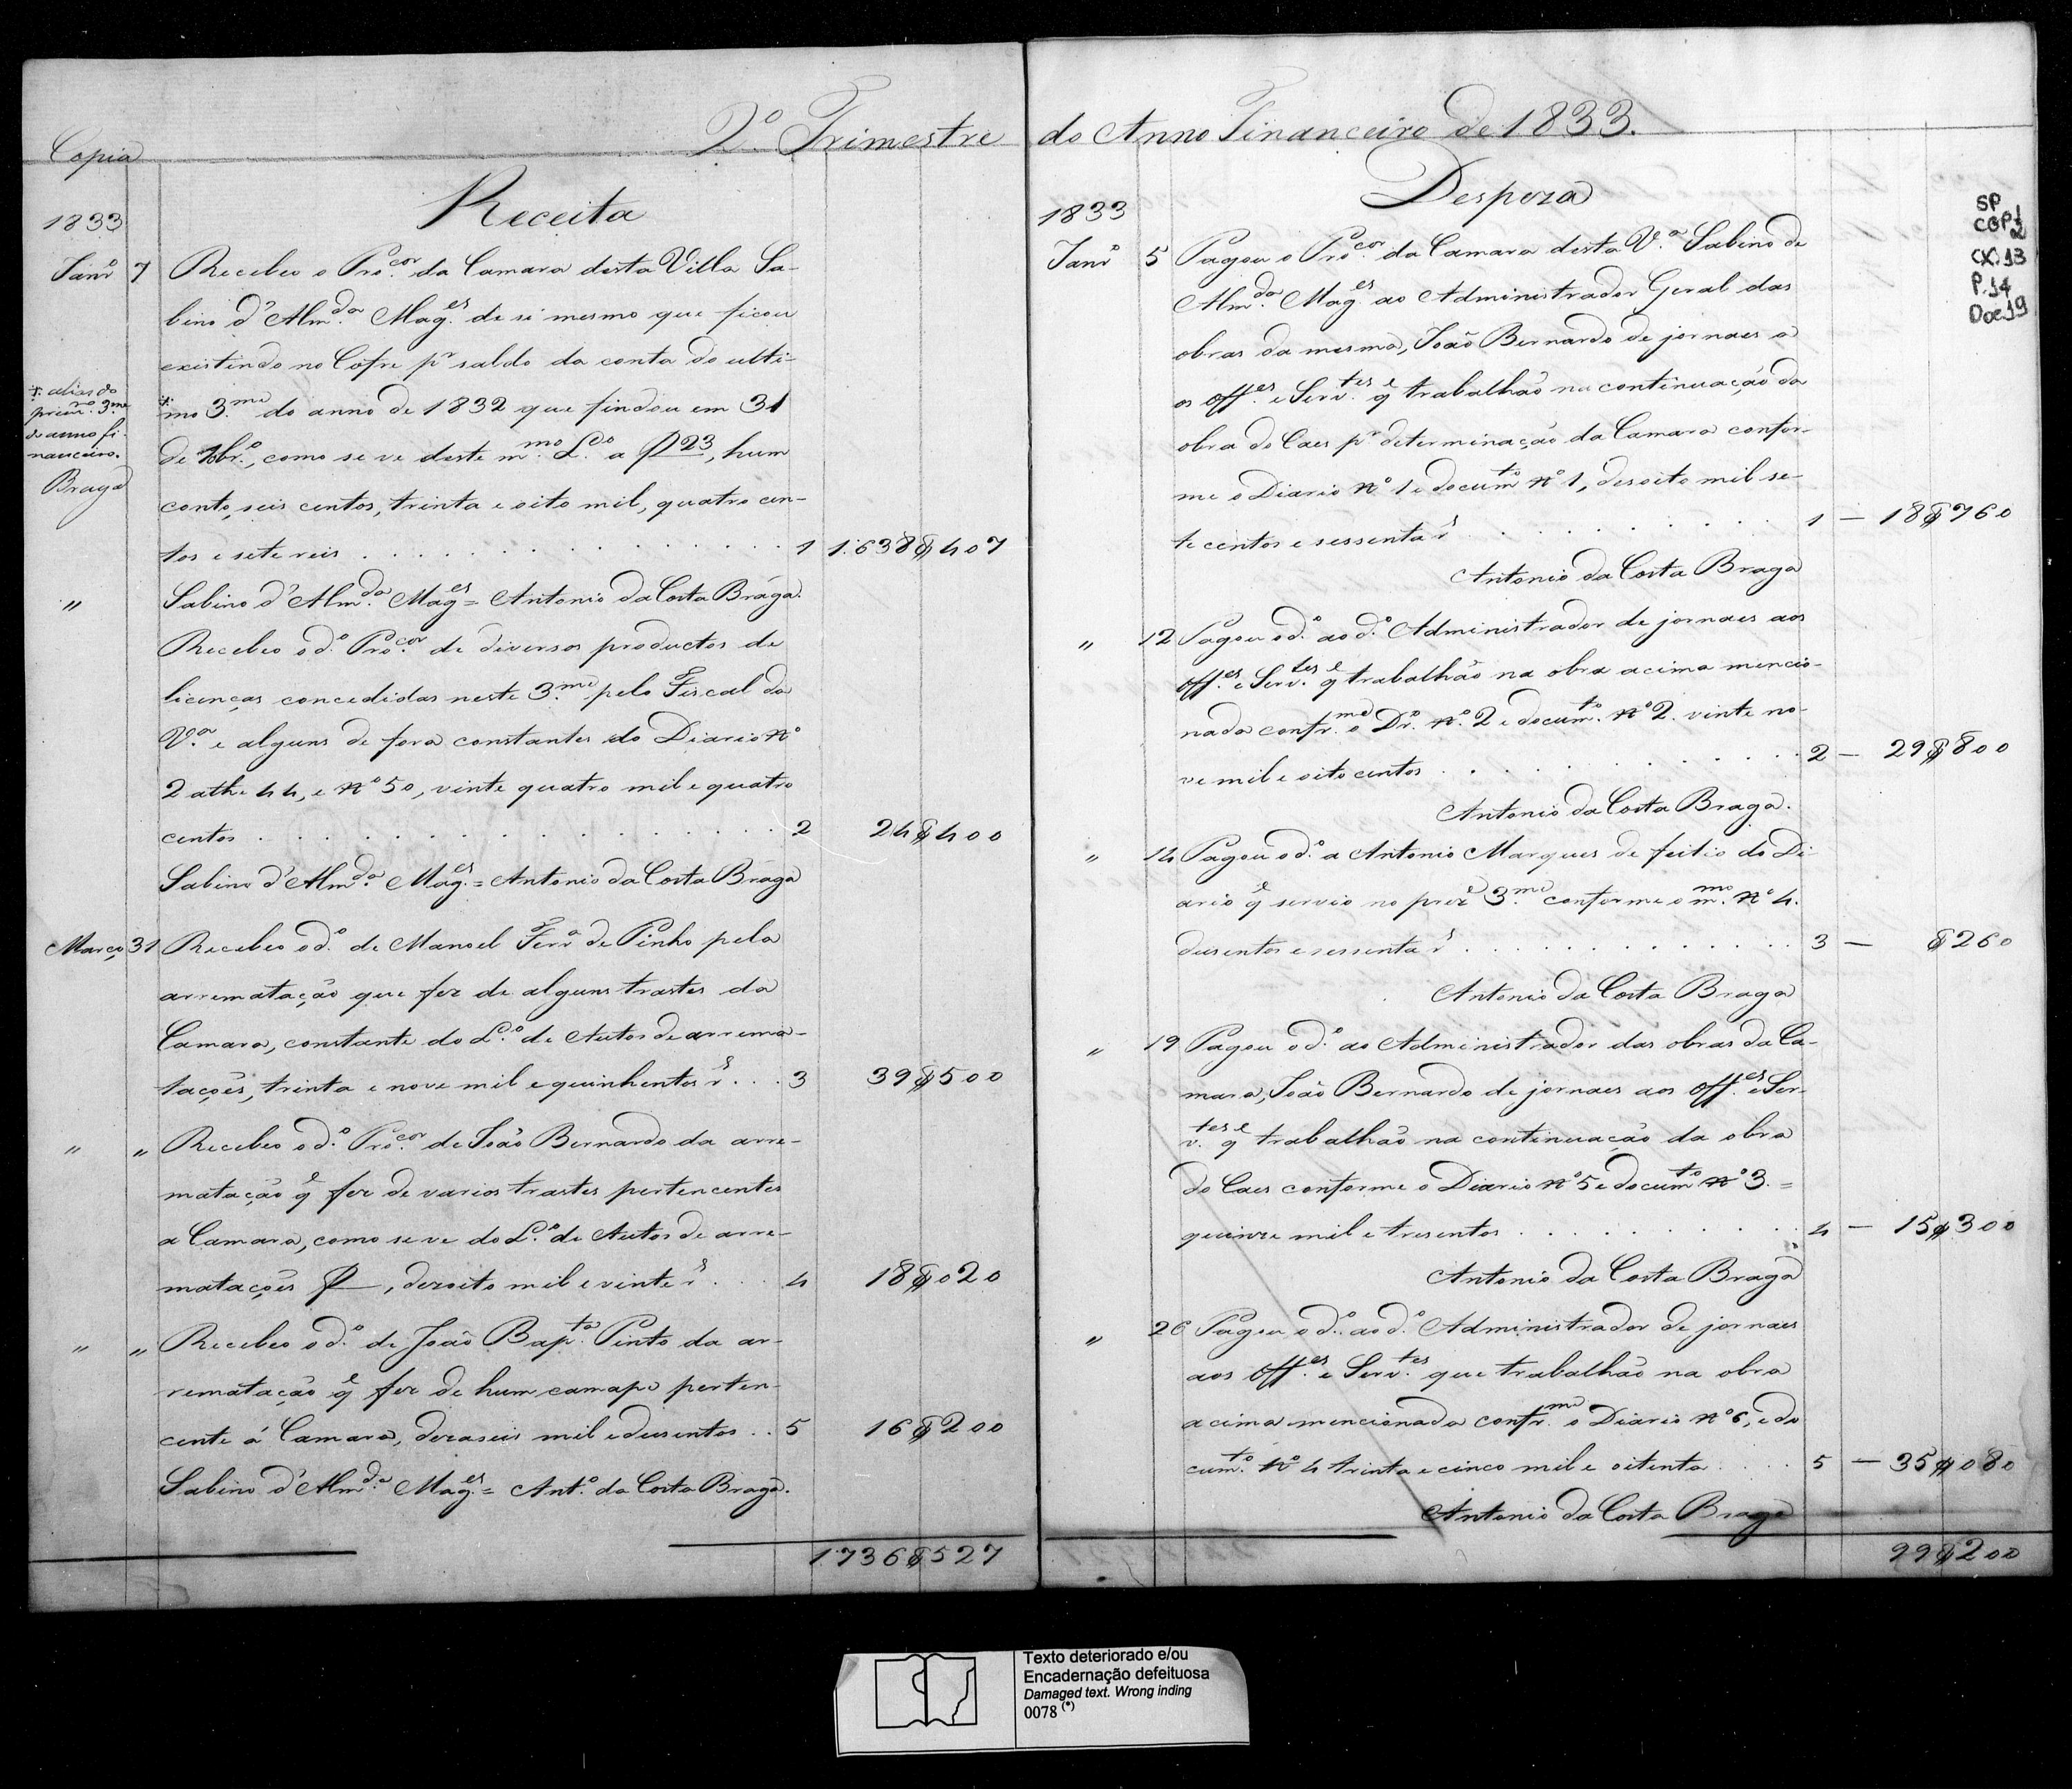 2.º Trimestre
Copia
Receita
1833
Janrº 7 Recebeo o Procor da Camara desta Villa Sa-
bino d'Almda Mages de si mesmo que ficou
existindo no Cofre pr saldo da conta do ulti-
*. alias do
primrº 3me
do anno fi-
nanceiro.
Braga
*mo 3.me do anno de 1832 que findou em 31
de Xbrº, como se ve deste mmo Lº a f 23, hum
conto, seis centos, trinta e oito mil, quatro cen-
tos e sete reis . . . 1 1:638$407
" Sabino d'Almda Mages = Antonio da Costa Braga.
Recebeo o dº Procor de diversos productos de
licenças concedidas neste 3.me pelo Fiscal da
V.ª e alguns de fora constantes do Diario Nº
2 athe 44, e Nº 50, vinte quatro mil e quatro
centos . . . 2 24$400
Sabino d'Almda Mages = Antonio da Costa Braga
Março 31 Recebeo o dº de Manoel Ferrª de Pinho pela
arrematação que fez de alguns trastes da
Camara, constante do Lº de Autos de arrema-
tações, trinta e nove mil e quinhentos rs . . . 3 39$500
" " Recebeo o dº Procor de João Bernardo da arre-
matação q̃ fez de varios trastes pertencentes
a Camara, como se ve do Lº de Autos de arre-
matações f —, dezoito mil e vinte rs . . . 4 18$020
" " Recebeo o dº de João Bapta Pinto da ar-
rematação q̃ fez de hum camape perten-
cente á Camara, dezaseis mil e dusentos . . 5 16$200
Sabino d'Almda Mages = Antº da Costa Braga.
1:736$527
do Anno Financeiro de 1833.
Despeza
1833
SP
CGP1
2
CX.13
P.14
Doc.19
Janrº 5 Pagou o Procor da Camara desta V.ª Sabino de
Almda Mages ao Administrador Geral das
obras da mesma, João Bernardo de jornaes a
os offes e Servtes q̃ trabalhão na continuação da
obra do Caes pr determinação da Camara confor-
me o Diario Nº 1 e documto Nº 1, desoito mil se-
te centos e sessenta rs . . . 1 — 18$760
Antonio da Costa Braga
" 12 Pagou o dº ao dº Administrador de jornaes aos
offes e Servtes q̃ trabalhão na obra acima mencio-
nada confrme o Drº Nº 2 e documto Nº 2. vinte no-
ve mil e oito centos . . . 2 — 29$800
Antonio da Costa Braga.
" 14 Pagou o dº a Antonio Marques de feitio do Di-
ario q̃ servio no preze 3.me conforme o mmo Nº 4.
dusentos e sessenta rs . . . 3 — $260
Antonio da Costa Braga
" 19 Pagou o dº ao Administrador das obras da Ca-
mara, João Bernardo de jornaes aos offes e Ser-
vtes q̃ trabalhão na continuação da obra
do Caes conforme o Diario Nº 5 e documto Nº 3. =
quinze mil e tresentos . . . 4 — 15$300
Antonio da Costa Braga
" 26 Pagou o dº ao dº Administrador de jornaes
aos offes e Servtes que trabalhão na obra
acima mencionada confrme o Diario Nº 6, e do
cumto Nº 4 trinta e cinco mil e oitenta . . . 5 — 35$080
Antonio da Costa Braga
99$200
Texto deteriorado e/ou
Encadernação defeituosa
Damaged text. Wrong inding
0078 (*)